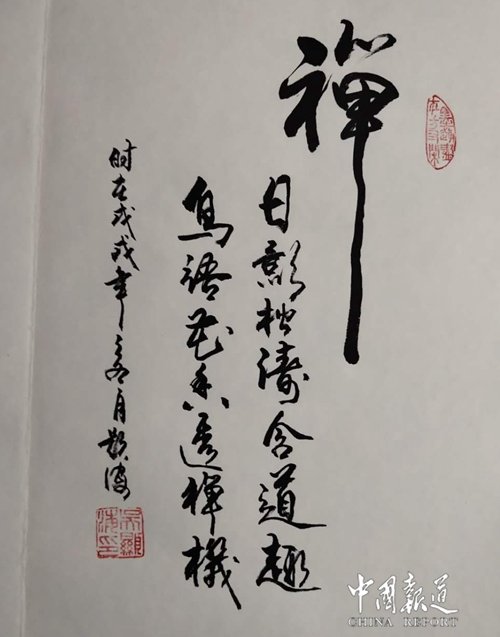 禪
日影松濤含道趣
鳥語花香透禪機
时在戊戌年月
中國報道
CHINA REPORT